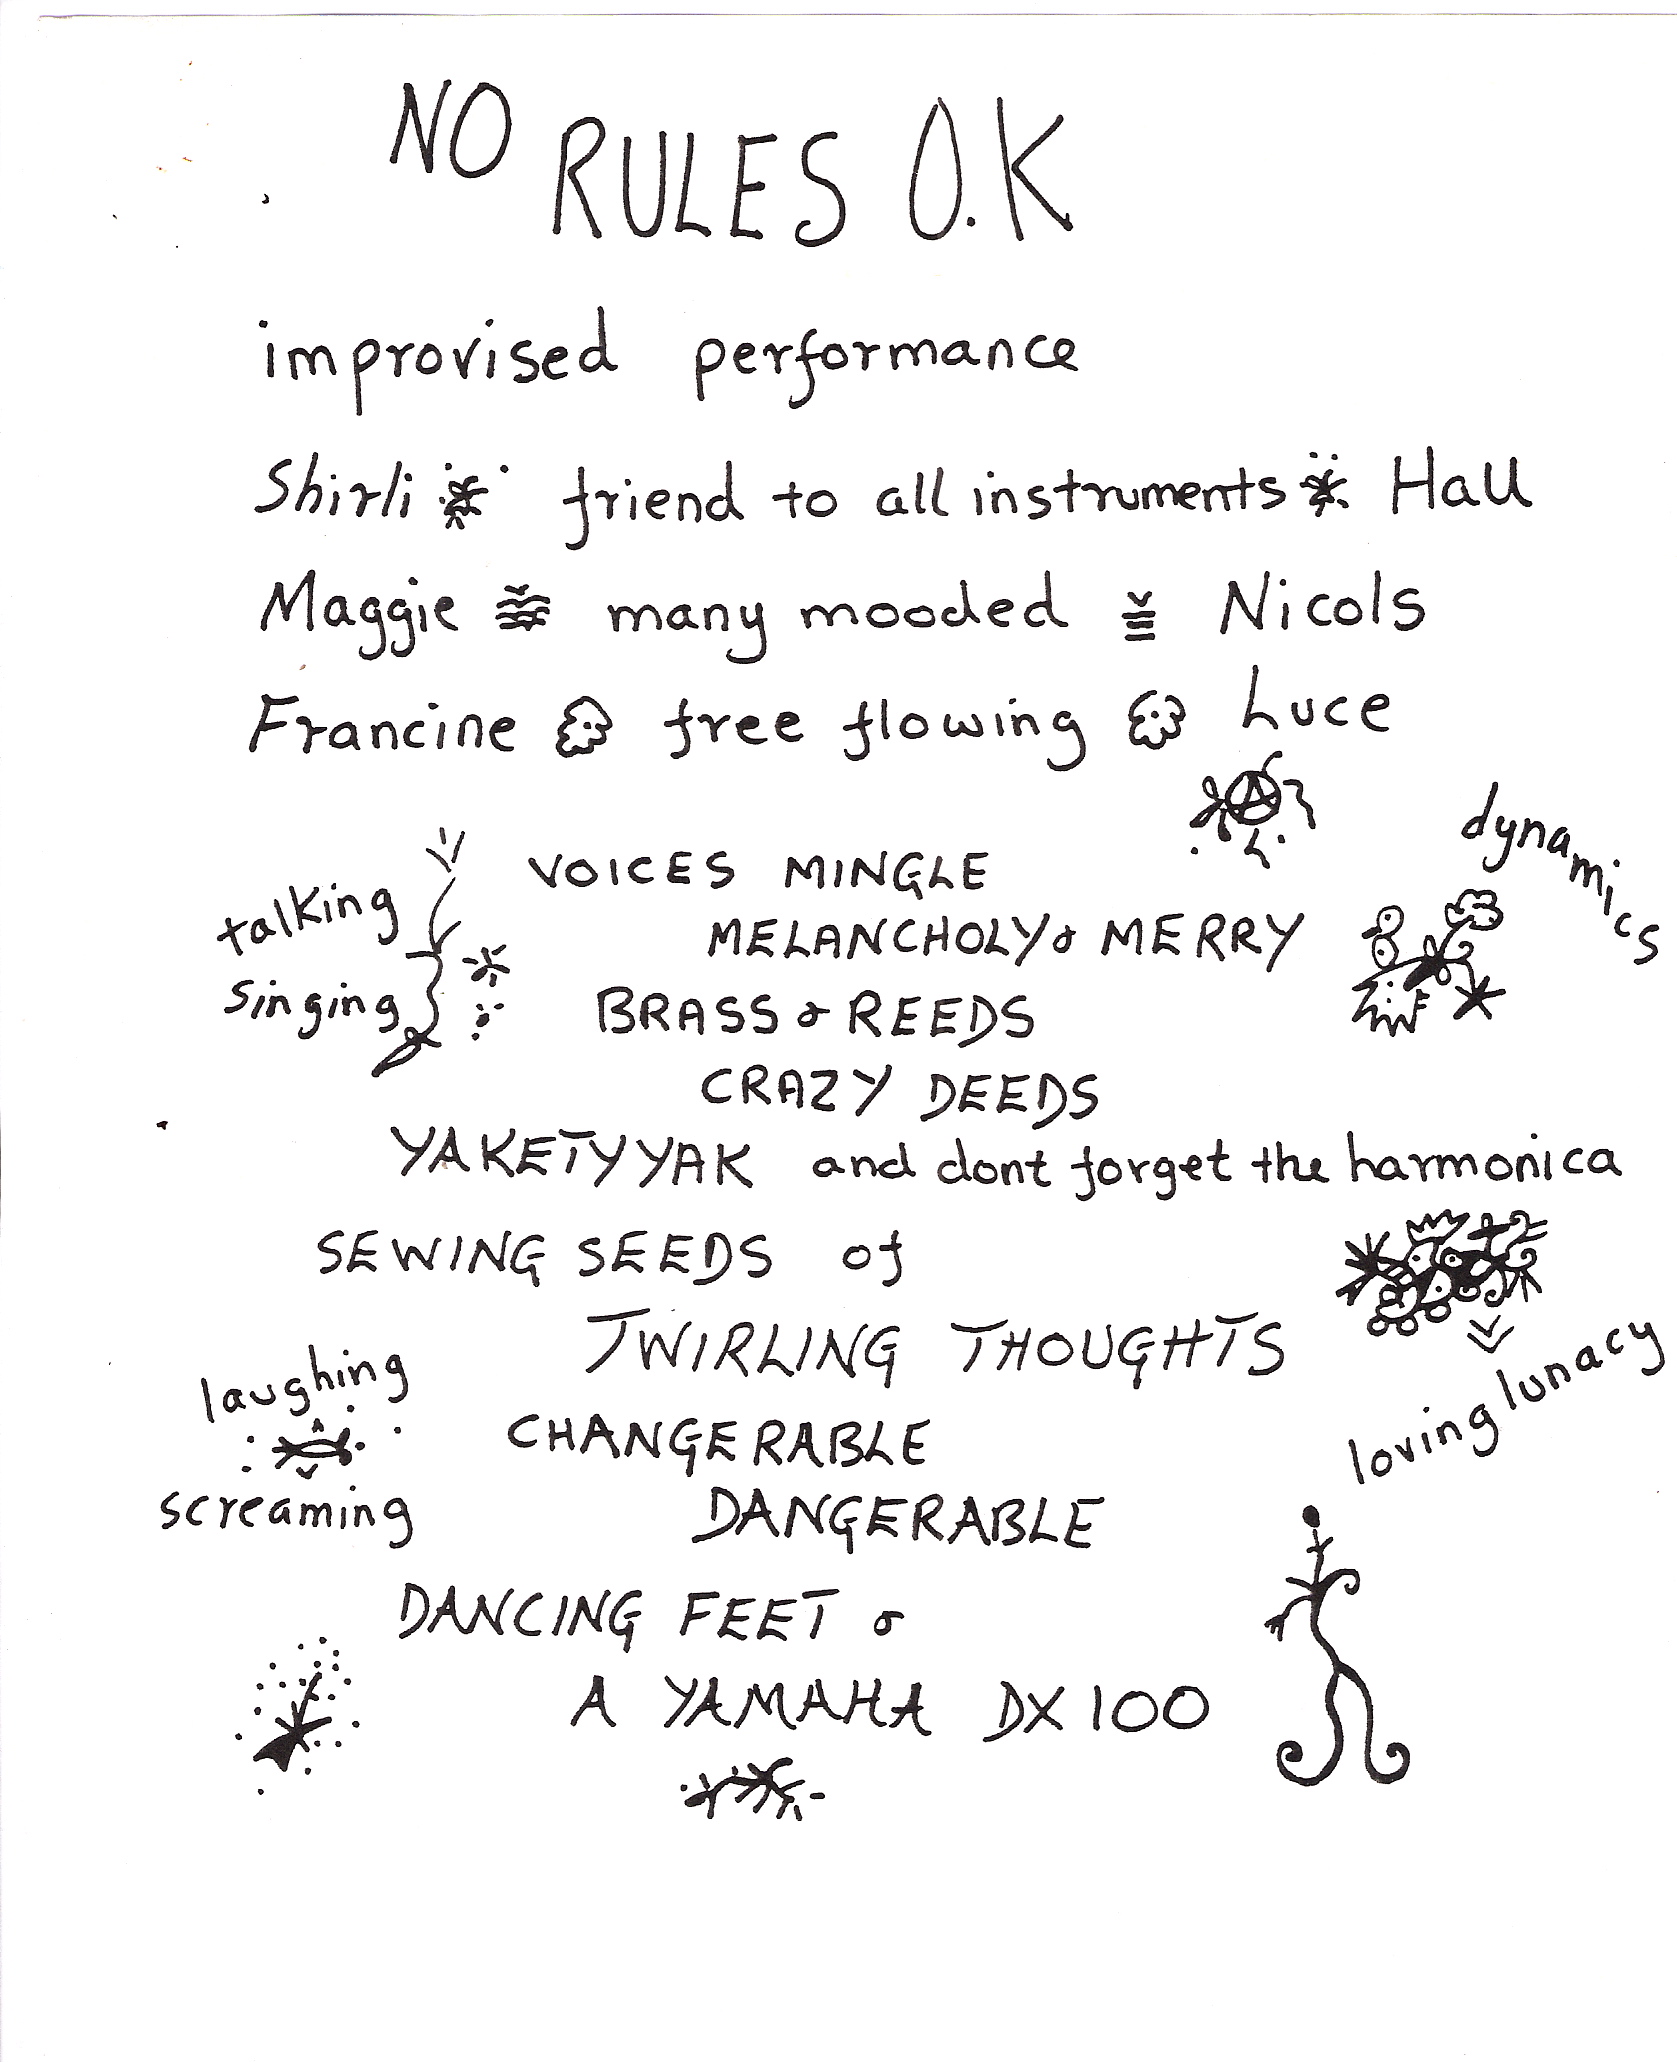 NO RULES O.K
improvised performance
Shirli friend to all instruments Hall
Maggie many mooded Nicols
Francine free flowing Luce
A
dynamics
VOICES MINGLE
talking
MELANCHOLY & MERRY
singing
BRASS & REEDS
CRAZY DEEDS
YAKETYYAK and dont forget the harmonica
SEWING SEEDS of
TWIRLING THOUGHTS
loving lunacy
laughing
CHANGERABLE
screaming
DANGERABLE
DANCING FEET &
A YAMAHA DX100